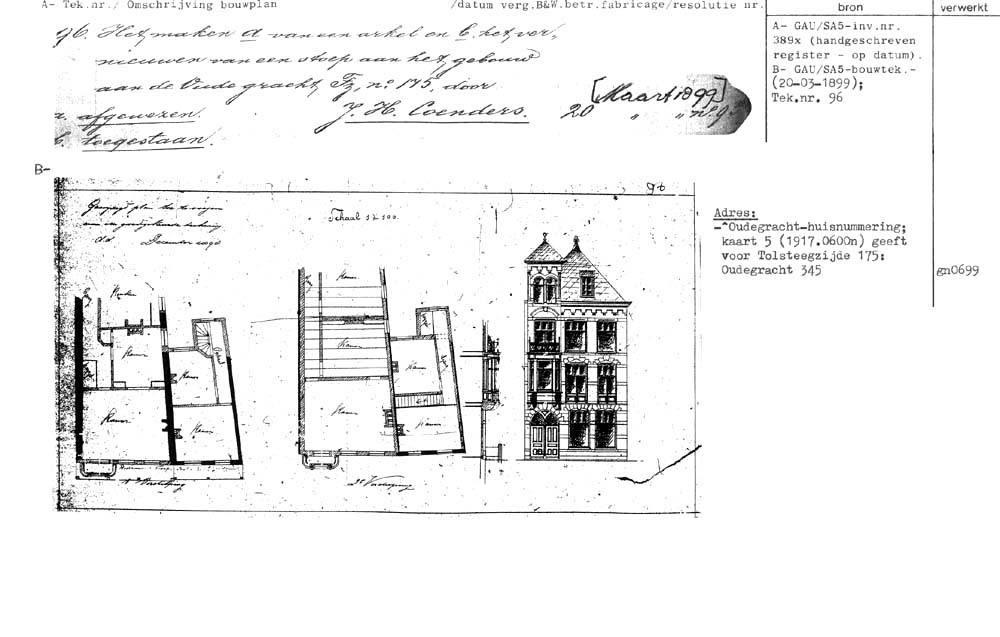 A- Tek.nr./ Omschrijving bouwplan /datum verg.B&W.betr.fabricage/resolutie nr.
bron
verwerkt
96. Het maken a van een arkel en b. het ver-
nieuwen van een stoep aan het gebouw
aan de Oude gracht, Tz, no 175, door
a. afgewezen. J. H. Coenders.
b. toegestaan.
[Maart 1899]
20 " " no. 9
A- GAU/SA5-inv.nr.
389x (handgeschreven
register - op datum).
B- GAU/SA5-bouwtek.-
(20-03-1899);
Tek.nr. 96
B-
96
Gewijzigd plan
Schaal 1 à 100.
Kamer
Kamer
Kamer
Kamer
Kamer
Kamer
Kamer
Kamer
Kamer
Adres:
-^Oudegracht-huisnummering;
kaart 5 (1917.0600n) geeft
voor Tolsteegzijde 175:
Oudegracht 345
gn0699